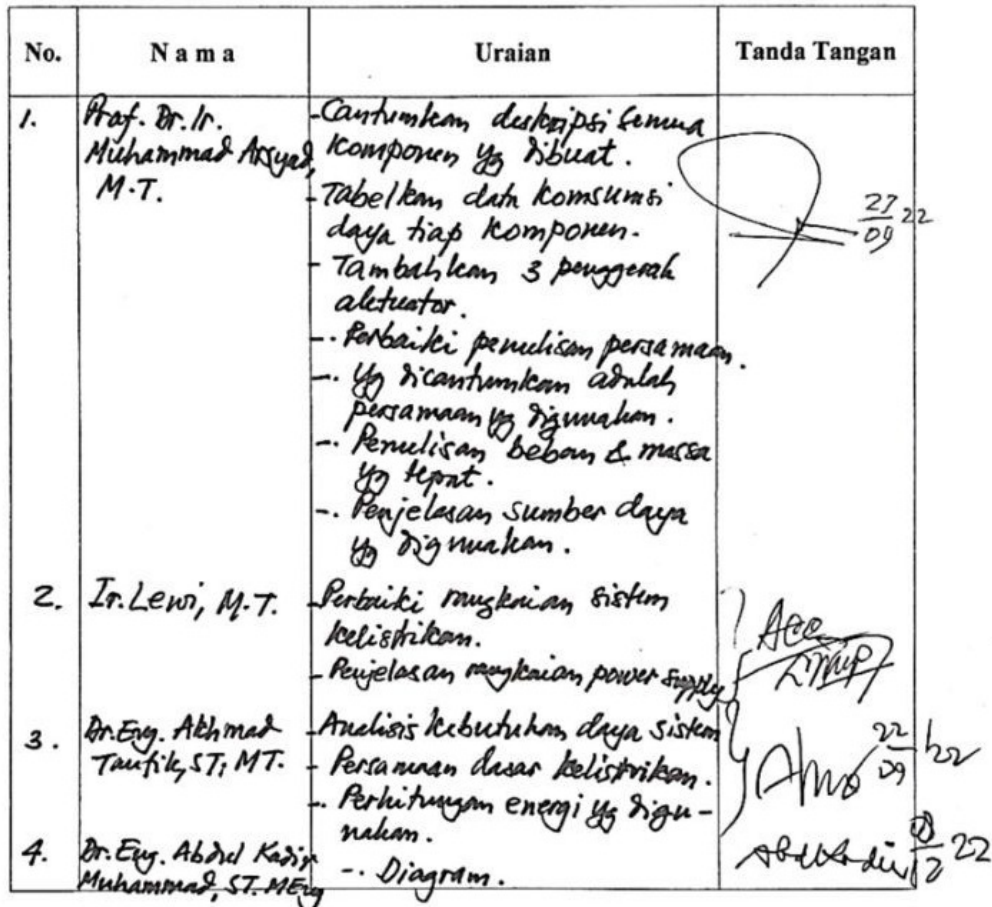 No. Nama Uraian Tanda Tangan
1. Prof. Dr. Ir. - Cantumkan deskripsi semua
Muhammad Arsyad, komponen yg dibuat.
M.T. - Tabelkan data komsumsi
daya tiap komponen.
27/09 22
- Tambahkan 3 penggerak
aktuator.
-. Perbaiki penulisan persamaan.
-. yg dicantumkan adalah
persamaan yg digunakan.
-. Penulisan beban & massa
yg tepat.
-. Penjelasan sumber daya
yg digunakan.
2. Ir. Lewi, M.T. - Perbaiki rangkaian sistem
kelistrikan.
- Penjelasan rangkaian power supply
Acc
3. Dr. Eng. Akhmad - Analisis kebutuhan daya sistem
Taufik, ST, MT. - Persamaan dasar kelistrikan.
22/09
-. Perhitungan energi yg digu-
nakan.
4. Dr. Eng. Abdul Kadir -. Diagram.
Muhammad, ST. MEng
22